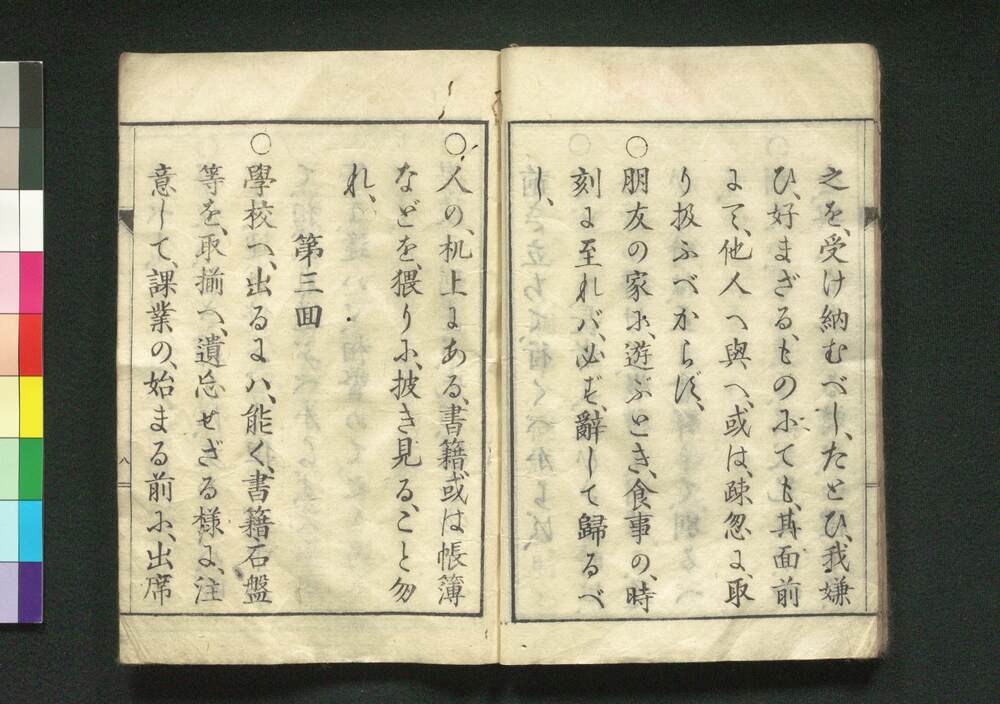 之を、受け納むべし、たとひ、我嫌
ひ、好まざる、ものにても、其面前
にて、他人へ與へ、或は、疎忽に、取
り扱ふべからず、
○朋友の家に、遊ぶとき、食事の、時
刻に至れバ、必ず、辭して歸るべ
し、
○人の、机上にある、書籍或は帳簿
などを、猥りに、披き見る、こと勿
れ、
第三回
○學校へ、出るにハ、能く、書籍石盤
等を、取揃へ、遺忘せざる様に、注
意して、課業の、始まる前に、出席
八